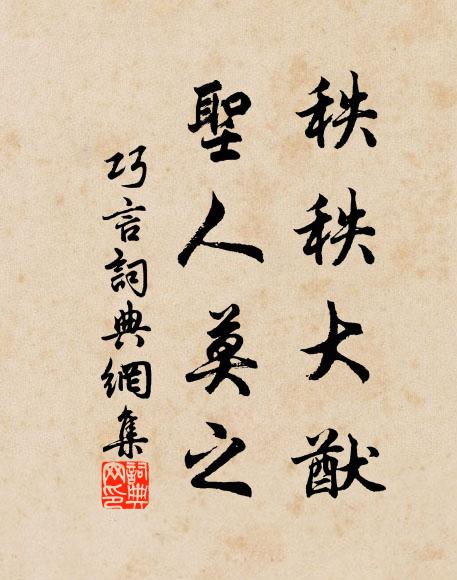 秩秩大猷
聖人莫之
巧言詞典網集
詞典
网印